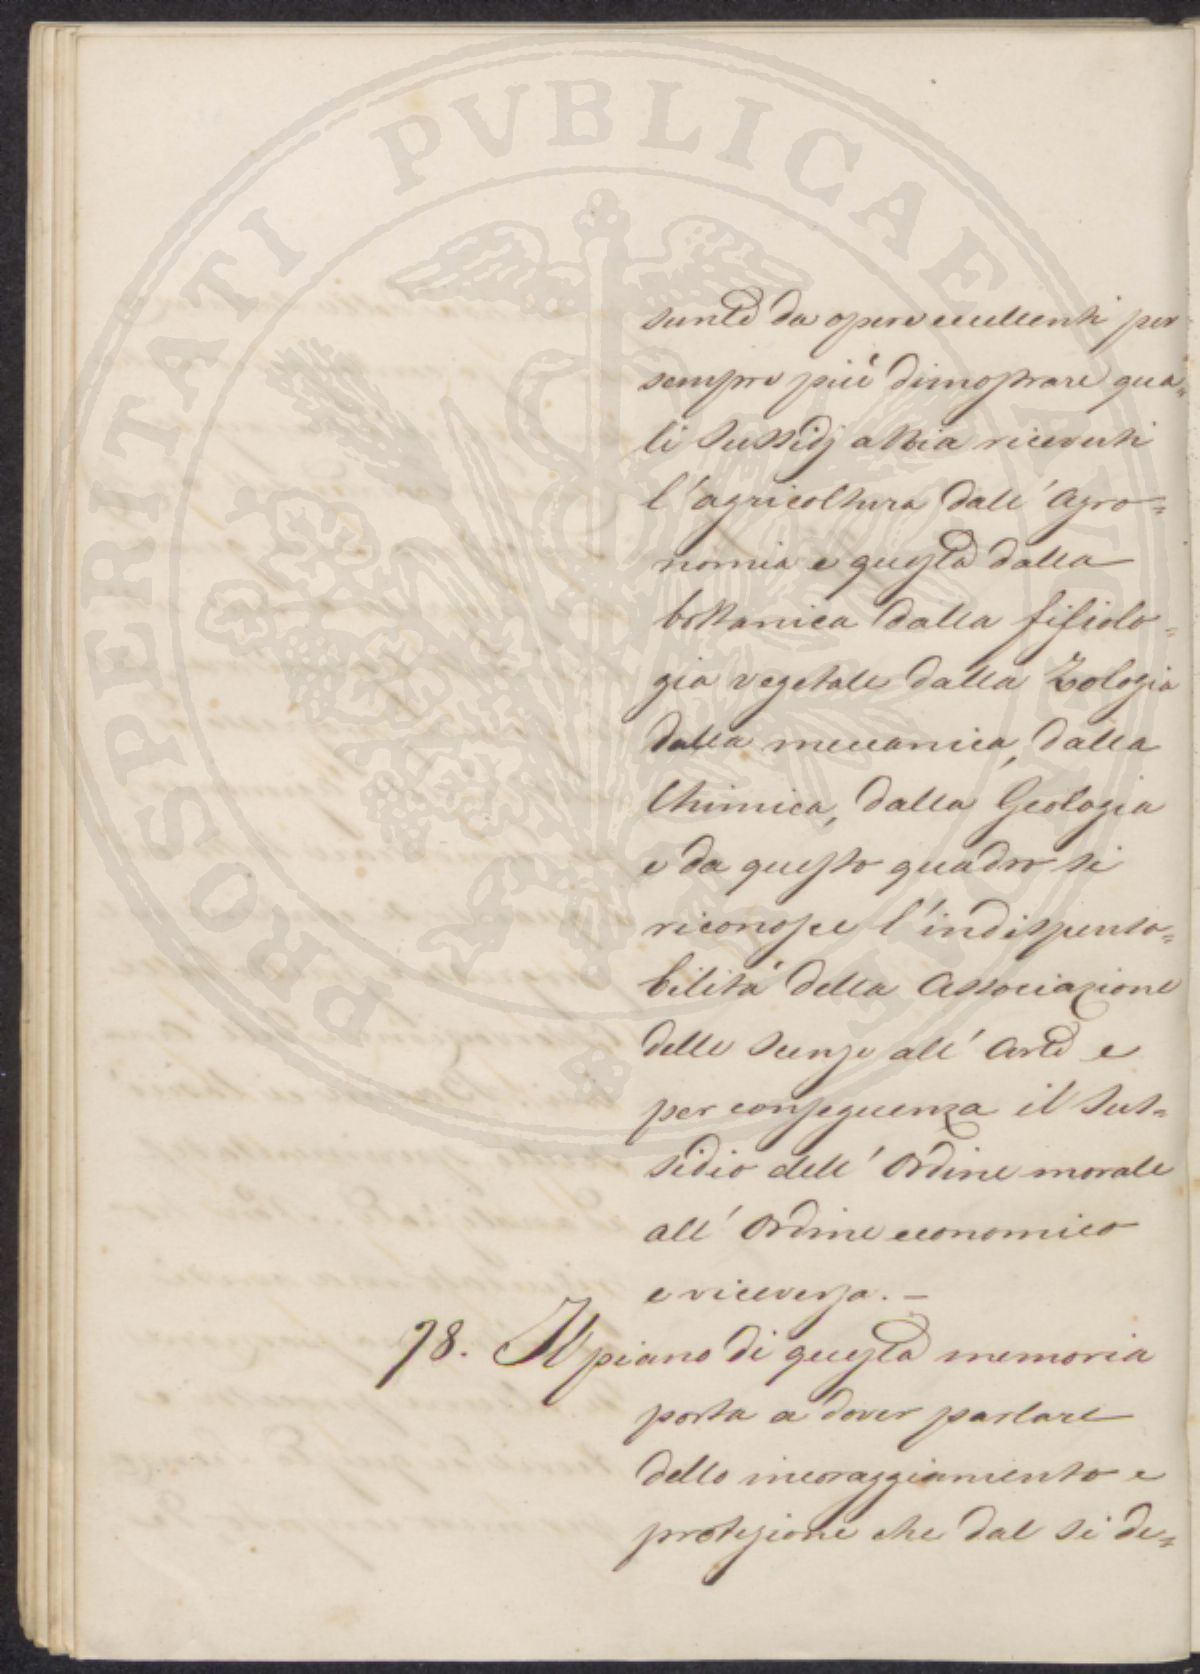 PROSPERITATI PVBLICAE AVGENDAE
sunte da opere eccellenti per
sempre più dimostrare qua=
li sussidj abbia ricevuti
l'agricoltura dall'Agro=
nomia e questa dalla
bottanica dalla fisiolo=
gia vegetale dalla Zologia
dalla meccanica, dalla
Chimica, dalla Geologia
e da questo quadro si
riconosce l'indispensa=
bilità della Associazione
delle Scienze all'Arte e
per conseguenza il Sus=
sidio dell'Ordine morale
all'Ordine economico
e viceversa. _
78. Il piano di questa memoria
porta a dover parlare
dello incoraggiamento e
protezione che dal si de=